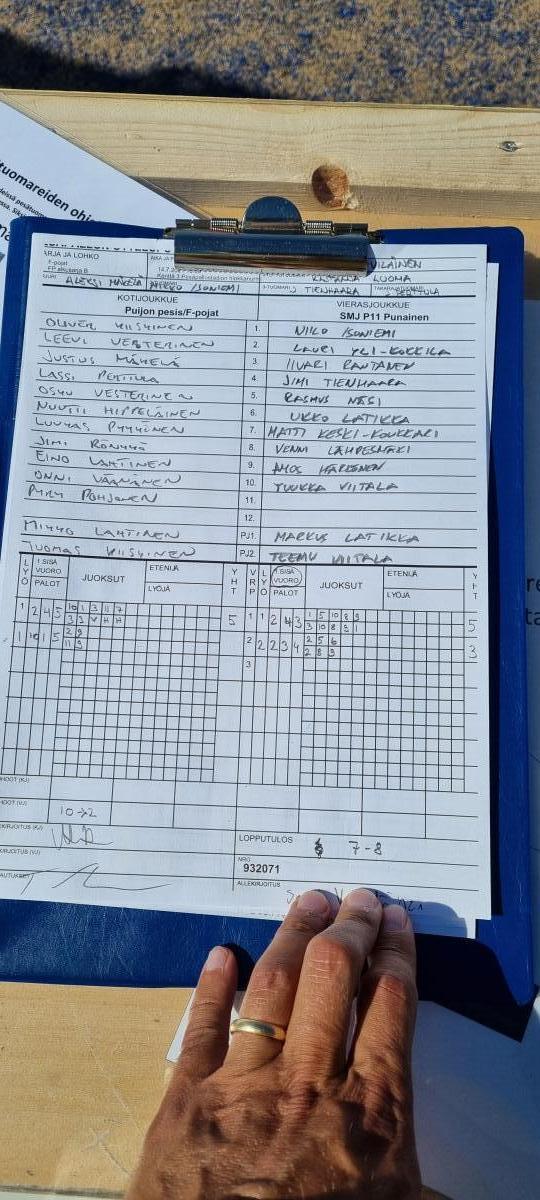 tuomareiden
ARJA JA LOHKO
F-pojat
FP alkusarja B
ALEKSI MÄKELÄ MIKKO ISONIEMI
LUOMA
TIENHAARA PERTTULA
KOTIJOUKKUE VIERASJOUKKUE
Puijon pesis/F-pojat SMJ P11 Punainen
OLIVER KIISKINEN 1. NIILO ISONIEMI
LEEVI VESTERINEN 2. LAURI YLI-KOKKILA
JUSTUS MÄKELÄ 3. IIVARI RANTANEN
LASSI PERTTULA 4. JIMI TIENHAARA
OSKU VESTERINEN 5. RASMUS NÄSI
NUUTTI HIPPELÄINEN 6. UKKO LATIKKA
LUUKAS PYYKÖNEN 7. MATTI KESKI-KOUKKARI
JIMI RÖNKKÖ 8. VENNI LÄHDESMÄKI
EINO LAHTINEN 9. AMOS HÄRKÖNEN
ONNI VÄÄNÄNEN 10. TUUKKA VIITALA
POHJONEN 11.
12.
MIKKO LAHTINEN PJ1. MARKUS LATIKKA
TUOMAS KIISKINEN PJ2. TEEMU VIITALA
LYÖ 1.SISÄ VUORO PALOT JUOKSUT ETENIJÄ LYÖJÄ YHT VRP LYÖ 1.SISÄ VUORO PALOT JUOKSUT ETENIJÄ LYÖJÄ YHT
1 2 4 5 10 1 3 11 7 5 1 1 2 4 3 1 5 10 8 9 5
3 3 V H H 3 10 8 9 1
1 10 1 5 2 9 2 2 2 3 4 2 5 6 3
11 9 2 8 9
3
HDOT (KJ)
HDOT (VJ) 10→2
EKIRJOITUS (KJ)
LOPPUTULOS 7-8
EKIRJOITUS (VJ)
NRO
932071
ALLEKIRJOITUS